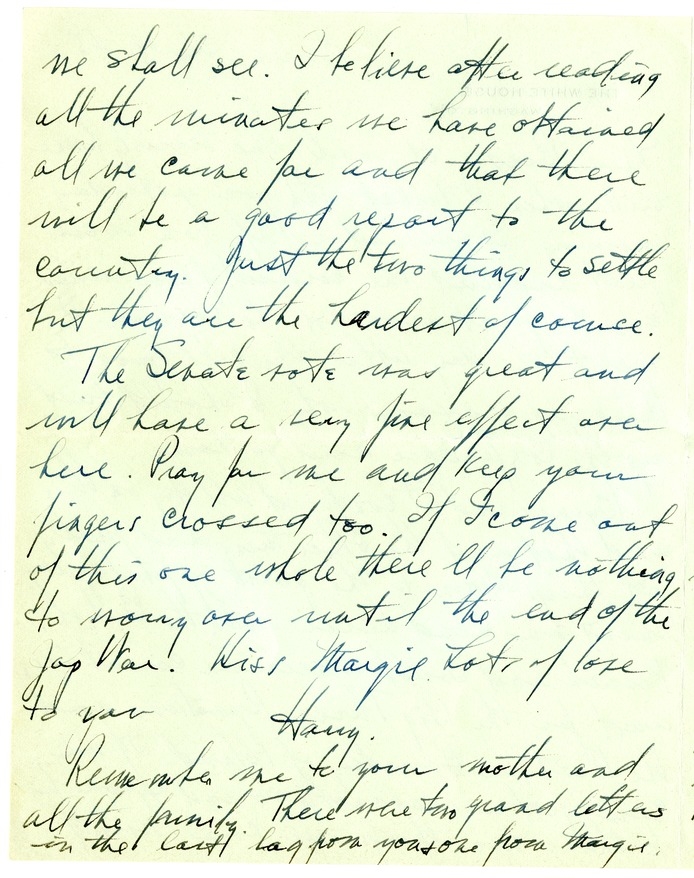 we shall see. I believe after reading
all the minutes we have obtained
all we came for and that there
will be a good report to the
country. Just the two things to settle
but they are the hardest of course.
The Senate vote was great and
will have a very fine effect over
here. Pray for me and keep your
fingers crossed too. If I come out
of this one whole there'll be nothing
to worry over until the end of the
Jap War. Kiss Margie. Lots of love
to you
Harry.
Remember me to your mother and
all the family. There were two grand letters
in the last bag from you & one from Margie.